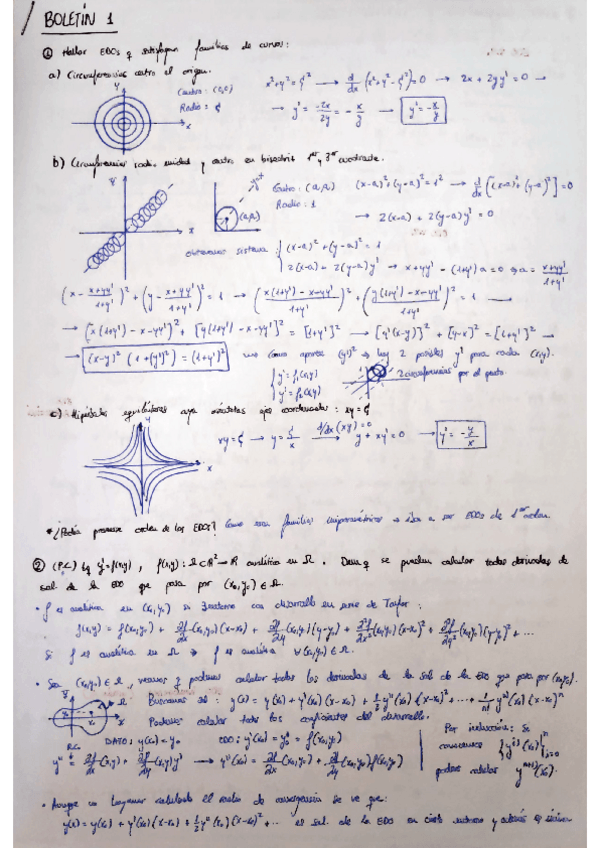 BOLETÍN 1
① Hallar EDOs q satisfagan familias de curvas:
a) Circunferencias centro el origen.
Centro: (0,0)
Radio: ξ
x²+y²=ξ² → d/dx (x²+y²-ξ²)=0 → 2x + 2yy' = 0 →
→ y' = -2x/2y = -x/y → y' = -x/y
b) Circunferencias radio unidad y centro en bisectriz 1er y 3er cuadrante.
Centro: (a,a)
Radio: 1
(x-a)²+(y-a)²=1² → d/dx [(x-a)²+(y-a)²]=0
→ 2(x-a) + 2(y-a)y' = 0
obtenemos sistema: { (x-a)² + (y-a)² = 1
2(x-a) + 2(y-a)y' → x+yy' - (1+y')a = 0 a = x+yy'/1+y'
(x - x+yy'/1+y')² + (y - x+yy'/1+y')² = 1 → (x(1+y') - x-yy'/1+y')² + (y(1+y')-x-yy'/1+y')² = 1 →
→ [x(1+y') - x-yy']² + [y(1+y') -x-yy']² = [1+y']² → [y'(x-y)]² + [y-x]² = [1+y']² →
→ (x-y)² (1+(y')²) = (1+y')² Como aparece (y')² → hay 2 posibles y' para cada (x,y).
{ y' = f₁(x,y)
y' = f₂(x,y)
2 circunferencias por el punto.
c) Hipérbolas equiláteras cuyas asíntotas ejes coordenados: xy=ξ
xy=ξ → y = ξ/x d/dx (xy)=0 → y + xy' = 0 → y' = -y/x
* ¿Podía preverse orden de las EDOs? Como son familias uniparamétricas → iban a ser EDOs de 1er orden.
② (P.C.) y'=f(x,y), f(x,y): Ω⊂R² → R analítica en Ω. Dem q se pueden calcular todas derivadas de
sol de la EDO que pasa por (x₀,y₀) ∈ Ω.
• f es analítica en (x₀,y₀) si ∃ entorno con desarrollo en serie de Taylor:
f(x,y) = f(x₀,y₀) + ∂f/∂x (x₀,y₀)(x-x₀) + ∂f/∂y (x₀,y₀)(y-y₀) + ∂²f/∂x² (x₀,y₀)(x-x₀)² + ∂²f/∂y² (x₀,y₀)(y-y₀)² + ...
Si f es analítica en Ω → f es analítica ∀(x₀,y₀) ∈ Ω.
• Sea (x₀,y₀) ∈ Ω, veamos q podemos calcular todas las derivadas de la sol de la EDO que pasa por (x₀,y₀).
Buscamos sol: y(x) = y(x₀) + y'(x₀)(x-x₀) + 1/2 y''(x₀)(x-x₀)² + ... + 1/n! yⁿ⁾(x₀)(x-x₀)ⁿ
Podemos calcular todos los coeficientes del desarrollo.
DATO: y(x₀) = y₀ EDO: y'(x₀) = y₀' = f(x₀,y₀)
y'' = ∂f/∂x (x,y) + ∂f/∂y (x,y)y' → y''(x₀) = ∂f/∂x (x₀,y₀) + ∂f/∂y (x₀,y₀)f(x₀,y₀)
Por inducción: Si
conocemos {yʲ⁾(x₀)}ⁿⱼ₌₀
podemos calcular yⁿ⁺¹⁾(x₀).
• Aunque no hayamos calculado el radio de convergencia se ve que:
y(x) = y(x₀) + y'(x₀)(x-x₀) + 1/2 y''(x₀)(x-x₀)² + ... es sol. de la EDO en cierto entorno y además es